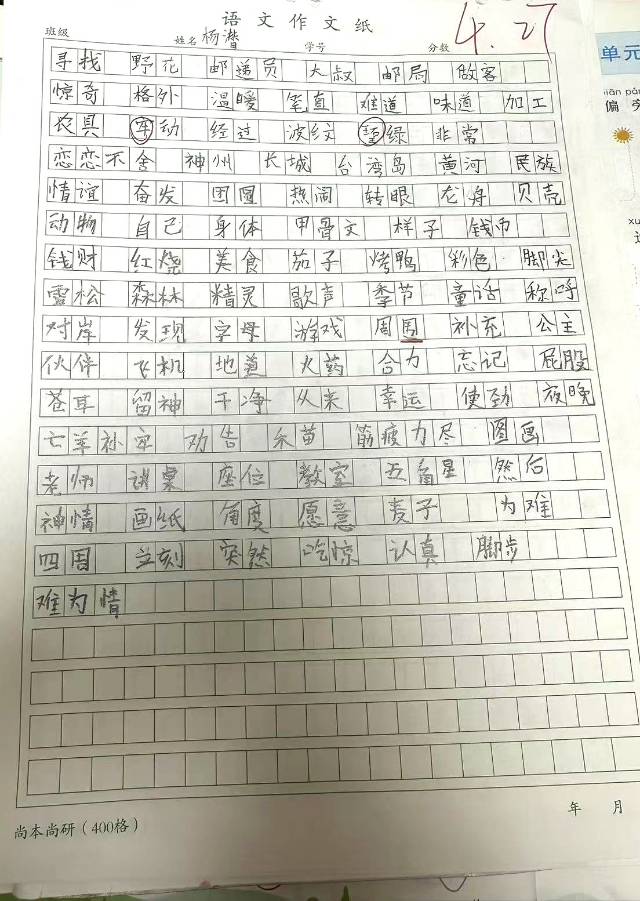 语文作文纸
班级 姓名 杨潸 学号 分数 4.27
寻找 野花 邮递员 大叔 邮局 做客
惊奇 格外 温暖 笔直 难道 味道 加工
农具 牢动 经过 波纹 绿 非常
恋恋不舍 神州 长城 台湾岛 黄河 民族
情谊 奋发 团圆 热闹 转眼 龙舟 贝壳
动物 自己 身体 甲骨文 样子 钱币
钱财 红烧 美食 茄子 烤鸭 彩色 脚尖
雪松 森林 精灵 歌声 季节 童话 称呼
对岸 发现 字母 游戏 周围 补充 公主
伙伴 飞机 地道 火药 合力 忘记 屁股
苍耳 留神 干净 从来 幸运 使劲 夜晚
亡羊补牢 劝告 禾苗 筋疲力尽 图画
老师 讲桌 座位 教室 五角星 然后
神情 画纸 角度 愿意 麦子 为难
四周 立刻 突然 吃惊 认真 脚步
难为情
年 月
尚本尚研（400格）
单元
piān
偏